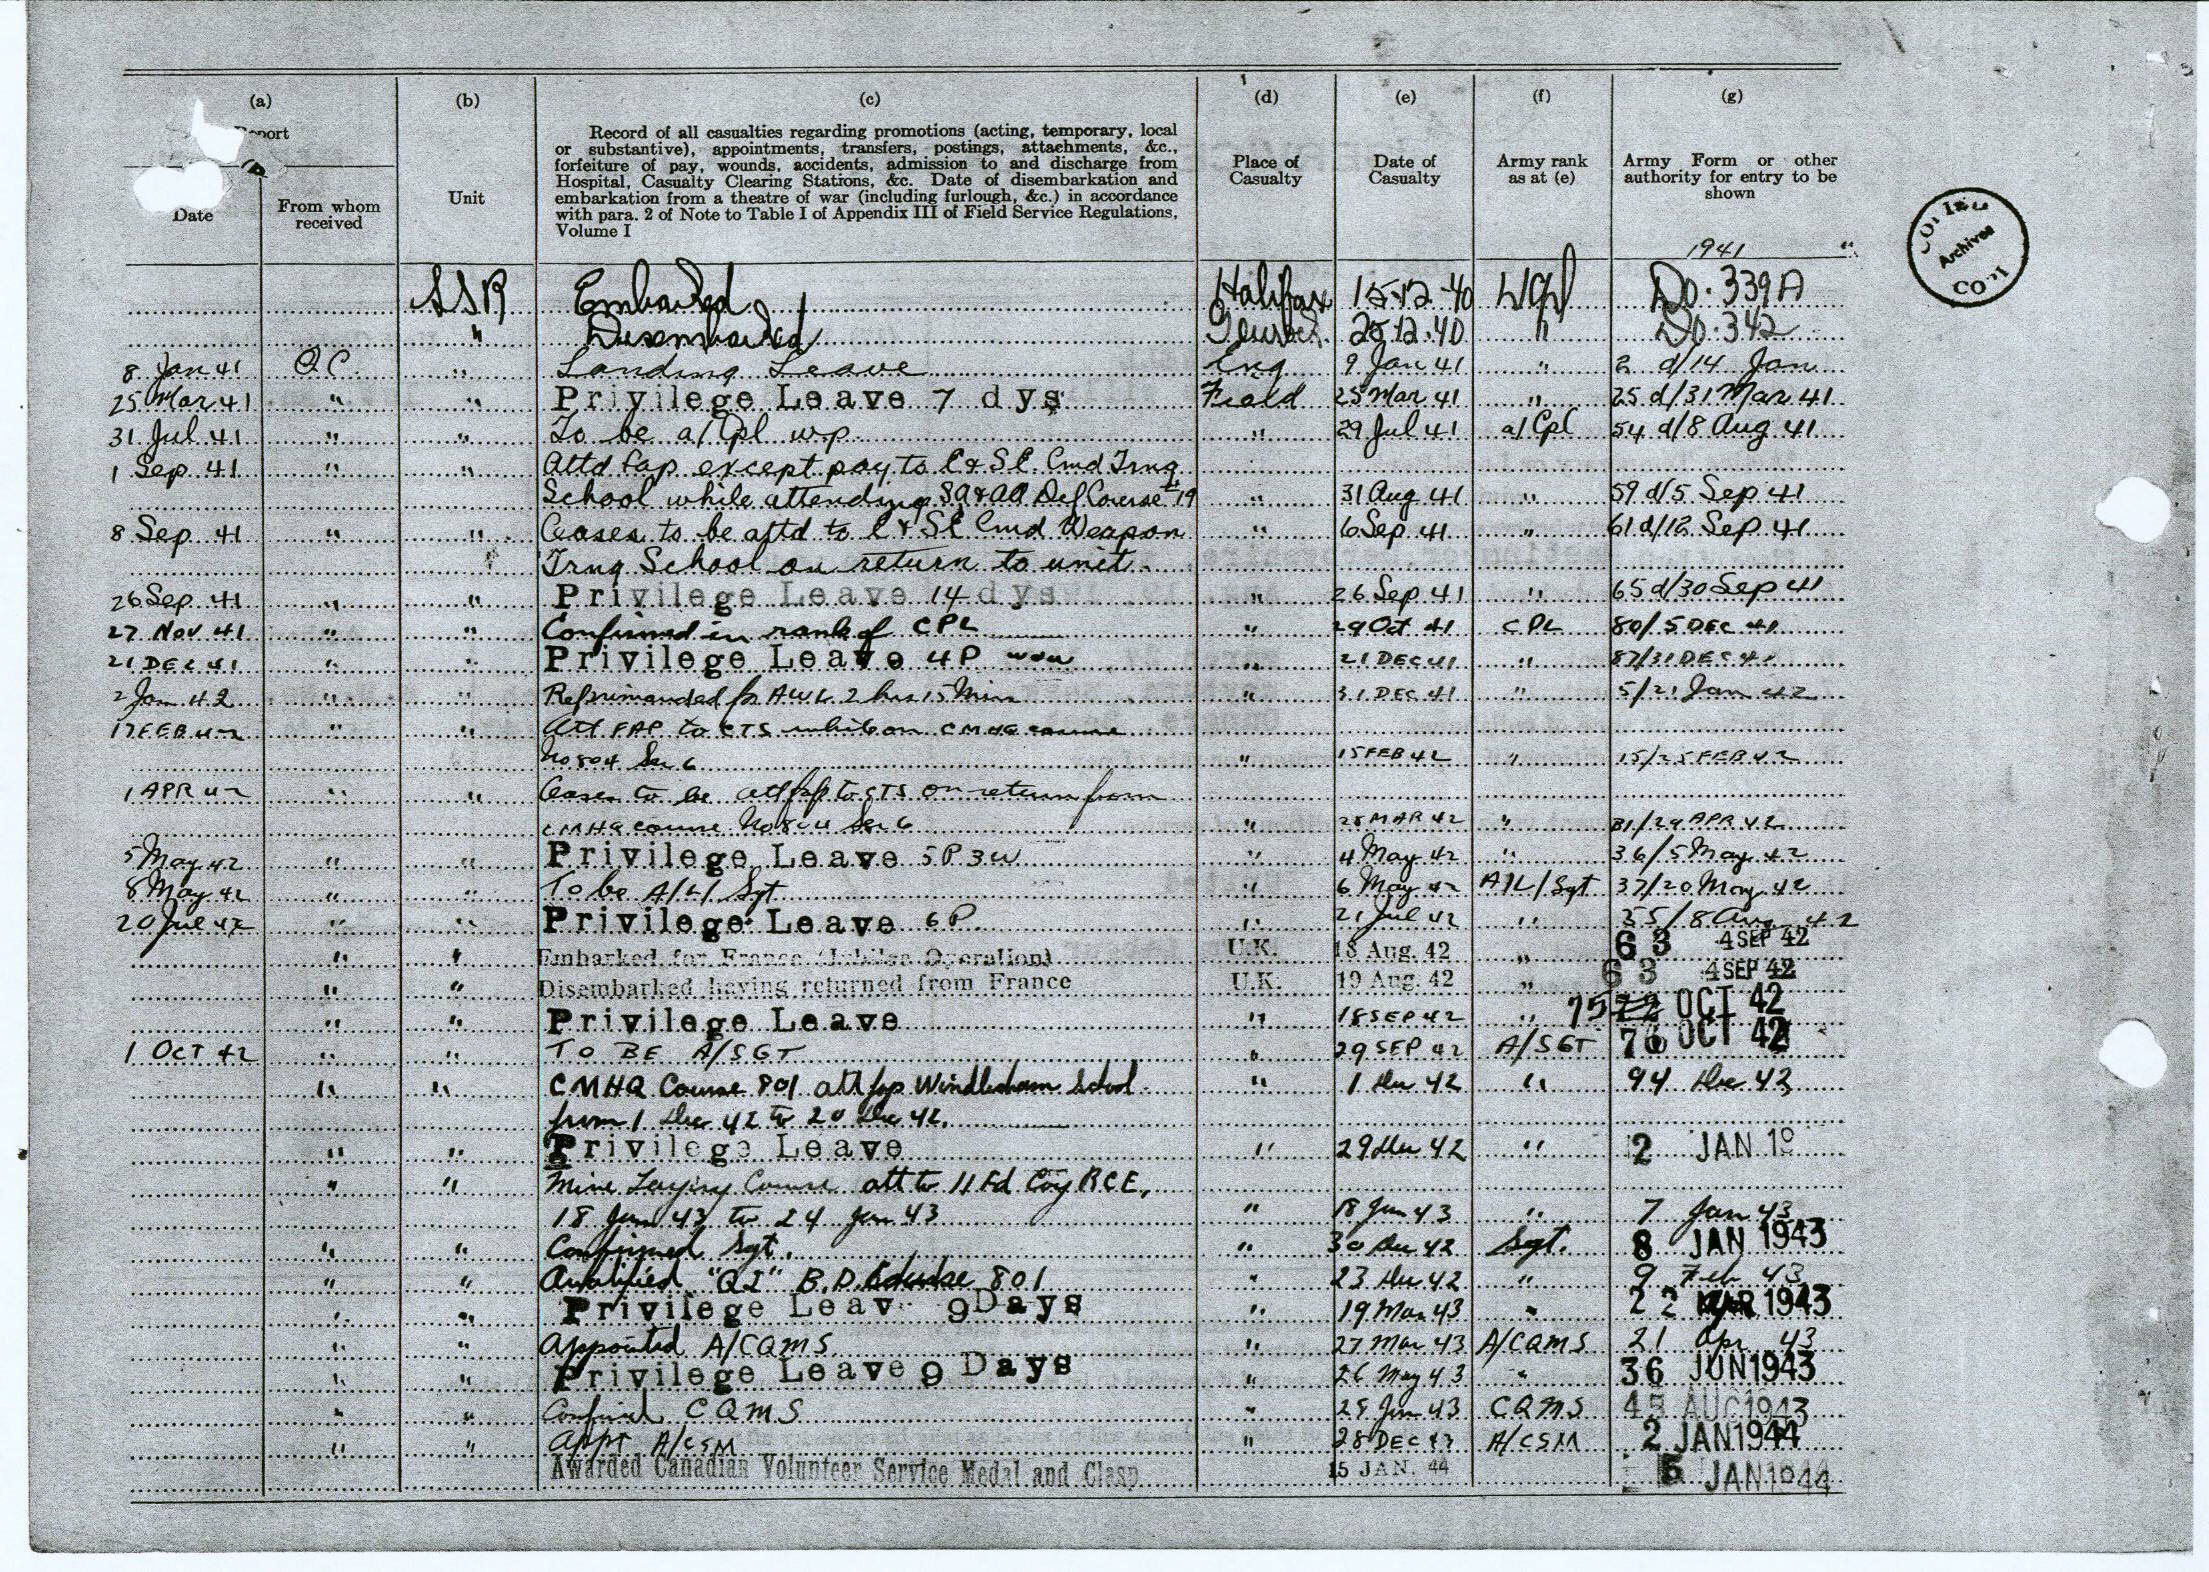 (a) (b) (c) (d) (e) (f) (g)
Report
Date
From whom received
Unit
Record of all casualties regarding promotions (acting, temporary, local
or substantive), appointments, transfers, postings, attachments, &c.,
forfeiture of pay, wounds, accidents, admission to and discharge from
Hospital, Casualty Clearing Stations, &c. Date of disembarkation and
embarkation from a theatre of war (including furlough, &c.) in accordance
with para. 2 of Note to Table I of Appendix III of Field Service Regulations,
Volume I
Place of Casualty
Date of Casualty
Army rank as at (e)
Army Form or other
authority for entry to be
shown
1941 "
SSR Embarked Halifax 15-12-40 Do. 339A
" Disembarked 25.12.40 " Do. 342
8 Jan 41 OC. " Landing Leave Eng 9 Jan 41 " 2 d/14 Jan
25 Mar 41 " " Privilege Leave 7 dys Field 25 Mar 41 " 25 d/31 Mar 41
31 Jul 41 " " To be a/Cpl w.p. " 29 Jul 41 a/Cpl 54 d/8 Aug 41
1 Sep 41 " " Attd fap except pay to C & SE Cmd Trng
School while attending SA & AA Def Course 19 " 31 Aug 41 " 59 d/5 Sep 41
8 Sep 41 " " Ceases to be attd to C & SE Cmd Weapon " 6 Sep 41 " 61 d/12 Sep 41
Trng School on return to unit.
26 Sep 41 " " Privilege Leave 14 dys " 26 Sep 41 " 65 d/30 Sep 41
27 Nov 41 " " Confirmed in rank of CPL " 29 Oct 41 CPL 80/5 DEC 41
21 DEC 41 " " Privilege Leave 4P " 21 DEC 41 " 87/31 DEC 41
2 Jan 42 " " Reprimanded for AWL 2 hrs 15 Mins " 31 DEC 41 " 5/21 Jan 42
17 FEB 42 " " Att FAP to CTS while on CMHQ course
No 804 Ser 6 " 15 FEB 42 " 15/25 FEB 42
1 APR 42 " " Ceases to be att fap to CTS on return from
CMHQ course No 804 Ser 6 " 28 MAR 42 " 31/29 APR 42
5 May 42 " " Privilege Leave 5P 3W " 4 May 42 " 36/5 May 42
8 May 42 " " To be A/L/Sgt " 6 May 42 A/L/Sgt 37/20 May 42
20 Jul 42 " " Privilege Leave 6P. " 21 Jul 42 " 55/8 Aug 42
" " Embarked for France (Jubilee Operation) U.K. 18 Aug. 42 " 63 4 SEP 42
" " Disembarked having returned from France U.K. 19 Aug. 42 " 63 4 SEP 42
" " Privilege Leave " 18 SEP 42 " 75 72 OCT 42
1 OCT 42 " " TO BE A/SGT " 29 SEP 42 A/SGT 76 OCT 42
" " CMHQ Course 801 att fap Windlesham School " 1 Dec 42 " 94 Dec 42
from 1 Dec 42 to 20 Dec 42.
" " Privilege Leave " 29 Dec 42 " 2 JAN 19
" " Mine Laying Course att to 11 Fd Coy RCE,
18 Jan 43 to 24 Jan 43 " 18 Jan 43 " 7 Jan 43
" " Confirmed Sgt. " 30 Dec 42 Sgt. 8 JAN 1943
" " Qualified "QI" B.D. Course 801 " 23 Dec 42 " 9 Feb 43
" " Privilege Leav 9 Days " 19 Mar 43 " 22 MAR 1943
" " Appointed A/CQMS " 27 Mar 43 A/CQMS 21 Apr 43
" " Privilege Leave 9 Days " 26 May 43 " 36 JUN 1943
" " CQMS " 43 CQMS 45 AUG 1943
" " Appt A/CSM " 28 DEC 43 A/CSM 2 JAN 1944
Awarded Canadian Volunteer Service Medal and Clasp 15 JAN. 44 5 JAN 1944
Archives